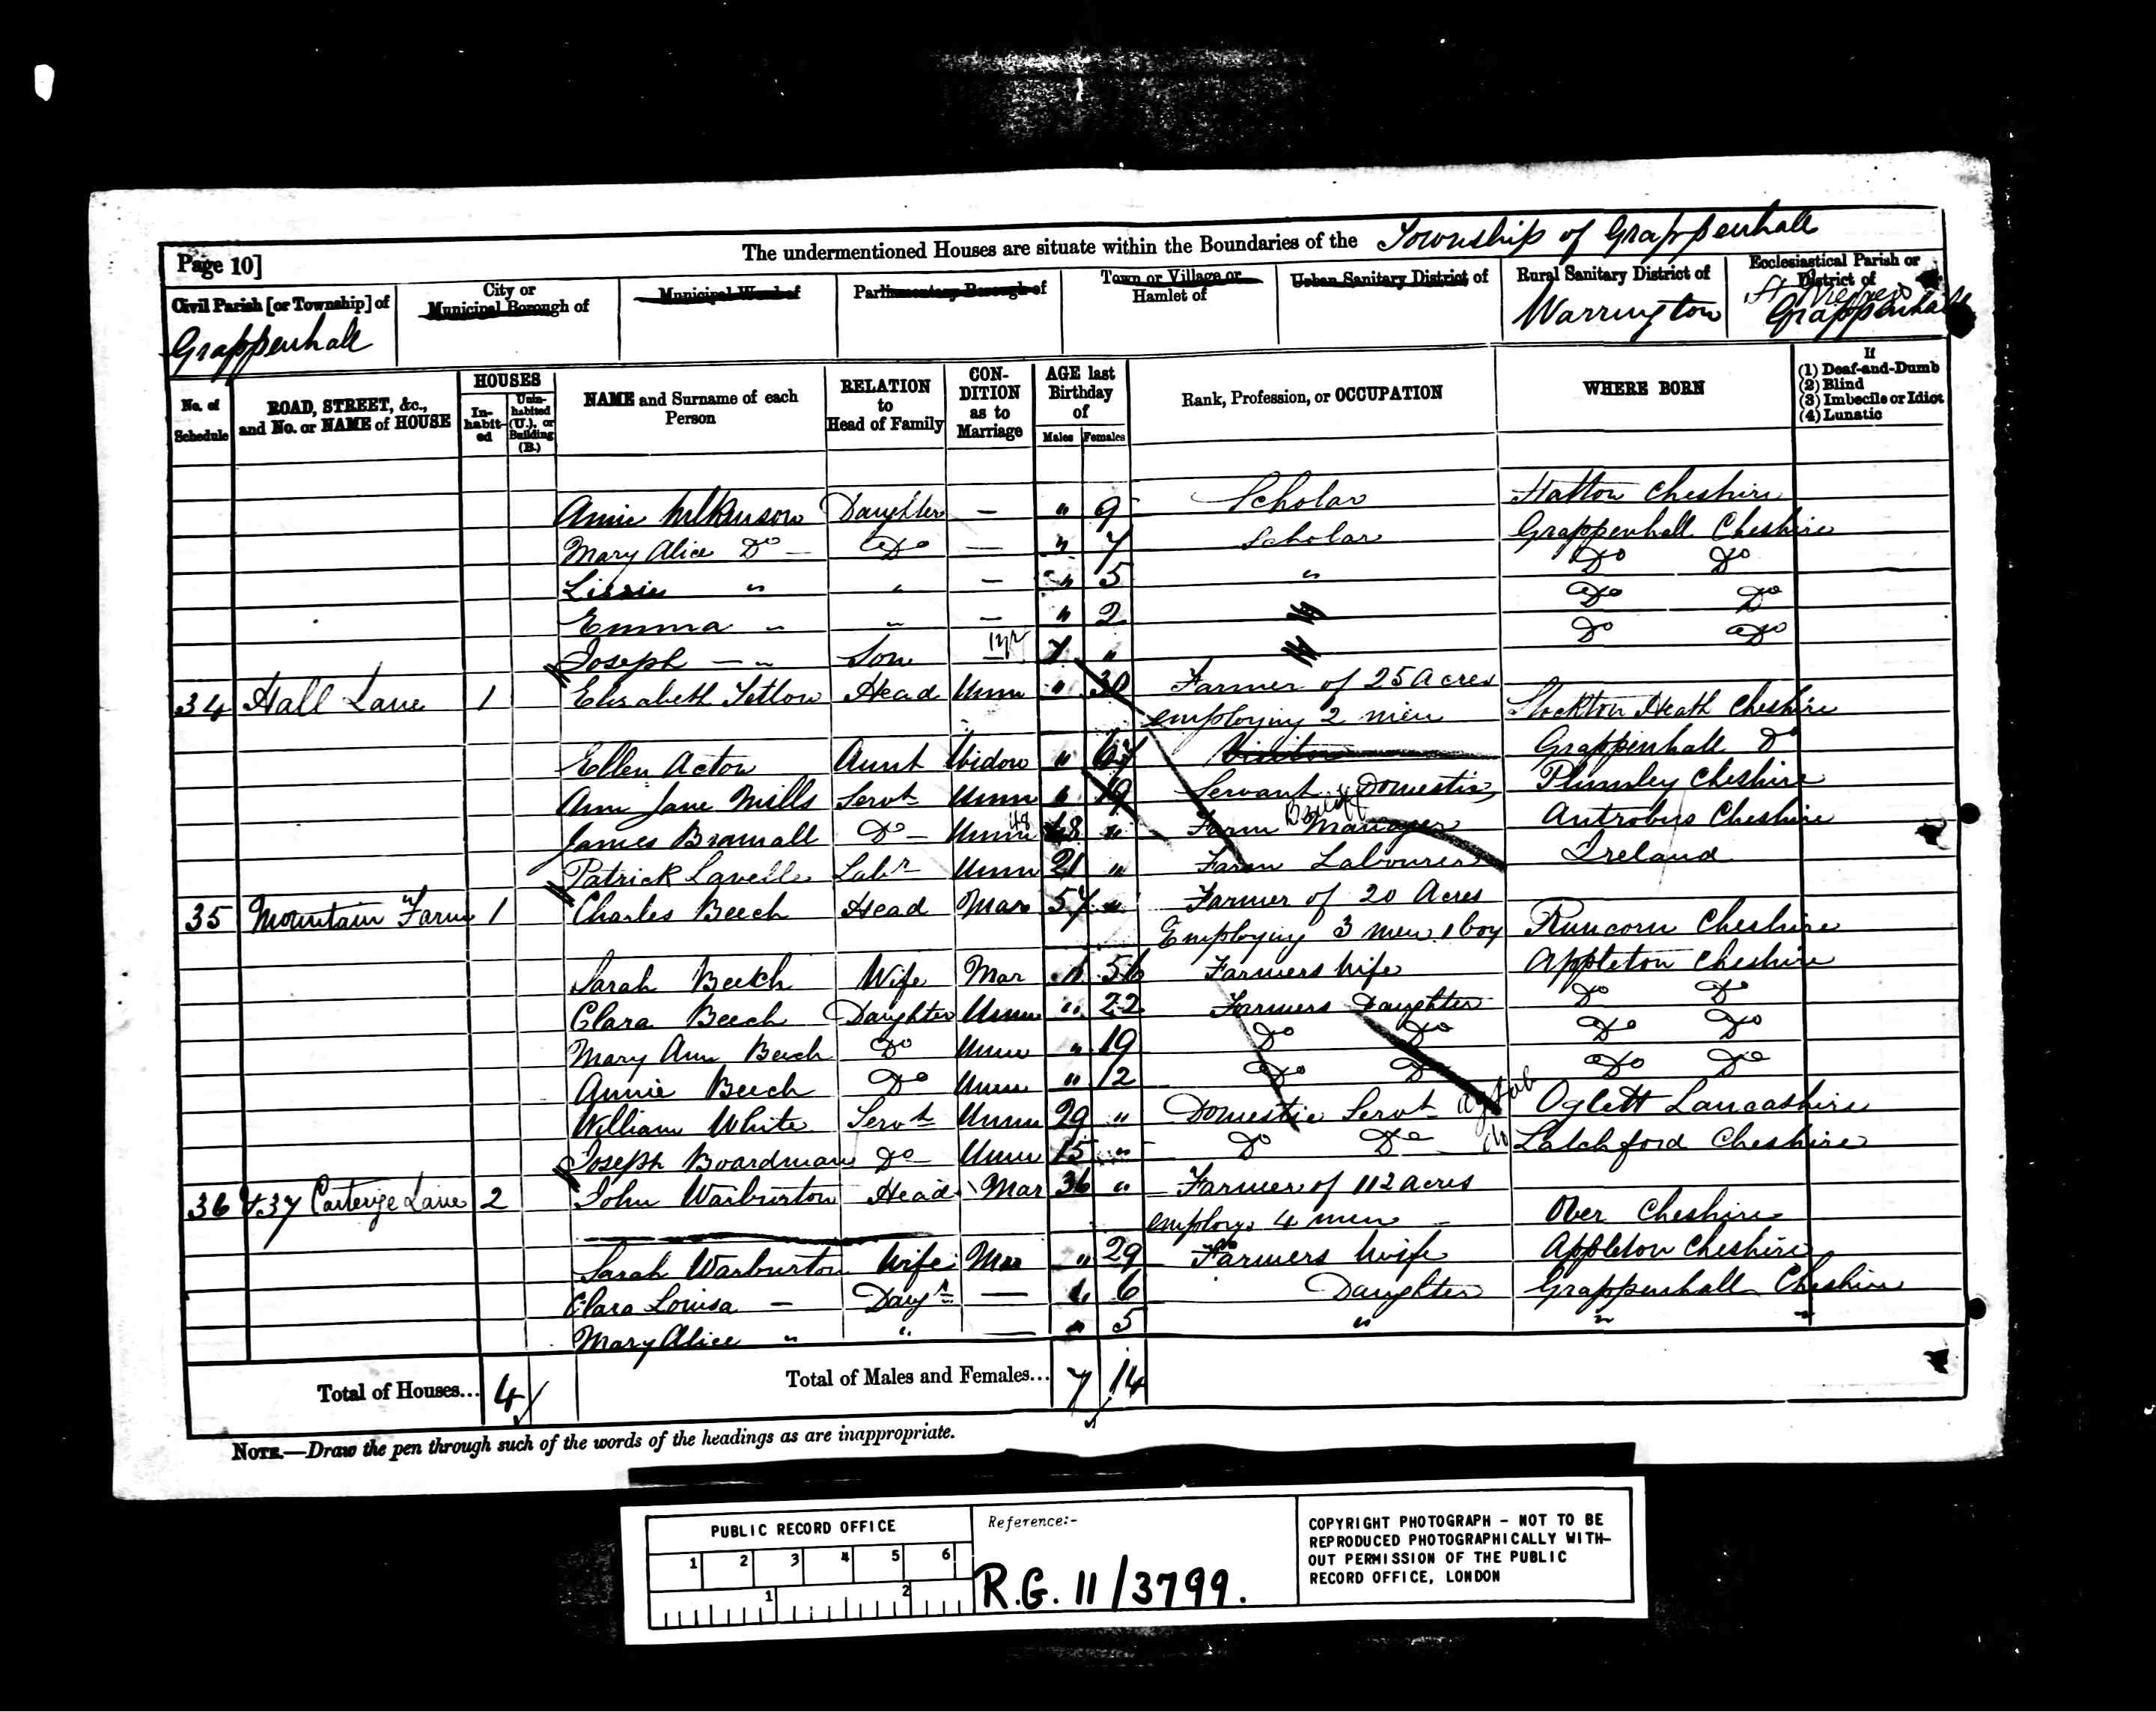 The undermentioned Houses are situate within the Boundaries of the Township of Grappenhall
Page 10]
Civil Parish [or Township] of
Grappenhall
City or
Municipal Borough of
Municipal Ward of
Parliamentary Borough of
Town or Village or
Hamlet of
Urban Sanitary District of
Rural Sanitary District of
Warrington
Ecclesiastical Parish or
District of
St
Grappenhall
No. of
Schedule
ROAD, STREET, &c.,
and No. or NAME of HOUSE
HOUSES
In-
habit-
ed
Unin-
habited
(U.), or
Building
(B.)
NAME and Surname of each
Person
RELATION
to
Head of Family
CON-
DITION
as to
Marriage
AGE last
Birthday
of
Males Females
Rank, Profession, or OCCUPATION
WHERE BORN
If
(1) Deaf-and-Dumb
(2) Blind
(3) Imbecile or Idiot
(4) Lunatic
Annie Wilkinson Daughter — " 9 Scholar Hatton Cheshire
Mary Alice Do — Do — " 7 Scholar Grappenhall Cheshire
Lissie " " — " 5 " Do Do
Emma " " — " 2 Do Do
Joseph — " Son 7 " Do Do
34 Hall Lane 1 Elisabeth Tetlow Head Unm " 30 Farmer of 25 Acres
employing 2 men Stockton Heath Cheshire
Ellen Acton Aunt Widow " 67 Visitor Grappenhall Do
Ann Jane Mills Servt Unm " 19 Servant Domestic Plumley Cheshire
James Bramall Do — Unm 48 48 " Farm Manager Bailiff Antrobus Cheshire
Patrick Lavelle Labr Unm 21 " Farm Labourer Ireland
35 Mountain Farm 1 Charles Beech Head Mar 57 " Farmer of 20 Acres
Employing 3 men 1 boy Runcorn Cheshire
Sarah Beech Wife Mar " 56 Farmers Wife Appleton Cheshire
Clara Beech Daughter Unm " 22 Farmers Daughter Do Do
Mary Ann Beech Do Unm " 19 Do Do Do Do
Annie Beech Do Unm " 12 Do Do Do Do
William White Servt Unm 29 " Domestic Servt Ag Lab Oglett Lancashire
Joseph Boardman Do — Unm 15 " Do Do Latchford Cheshire
36 & 37 Lane 2 John Warburton Head Mar 36 " Farmer of 112 acres
employs 4 men Over Cheshire
Sarah Warburton Wife Mar " 29 Farmers Wife Appleton Cheshire
Clara Louisa — Daugr — " 6 Daughter Grappenhall Cheshire
Mary Alice " " — " 5 " " "
Total of Houses... 4
Total of Males and Females... 7 14
NOTE.—Draw the pen through such of the words of the headings as are inappropriate.
PUBLIC RECORD OFFICE
1 2 3 4 5 6
1 2
Reference:-
R.G. 11/3799.
COPYRIGHT PHOTOGRAPH – NOT TO BE
REPRODUCED PHOTOGRAPHICALLY WITH-
OUT PERMISSION OF THE PUBLIC
RECORD OFFICE, LONDON